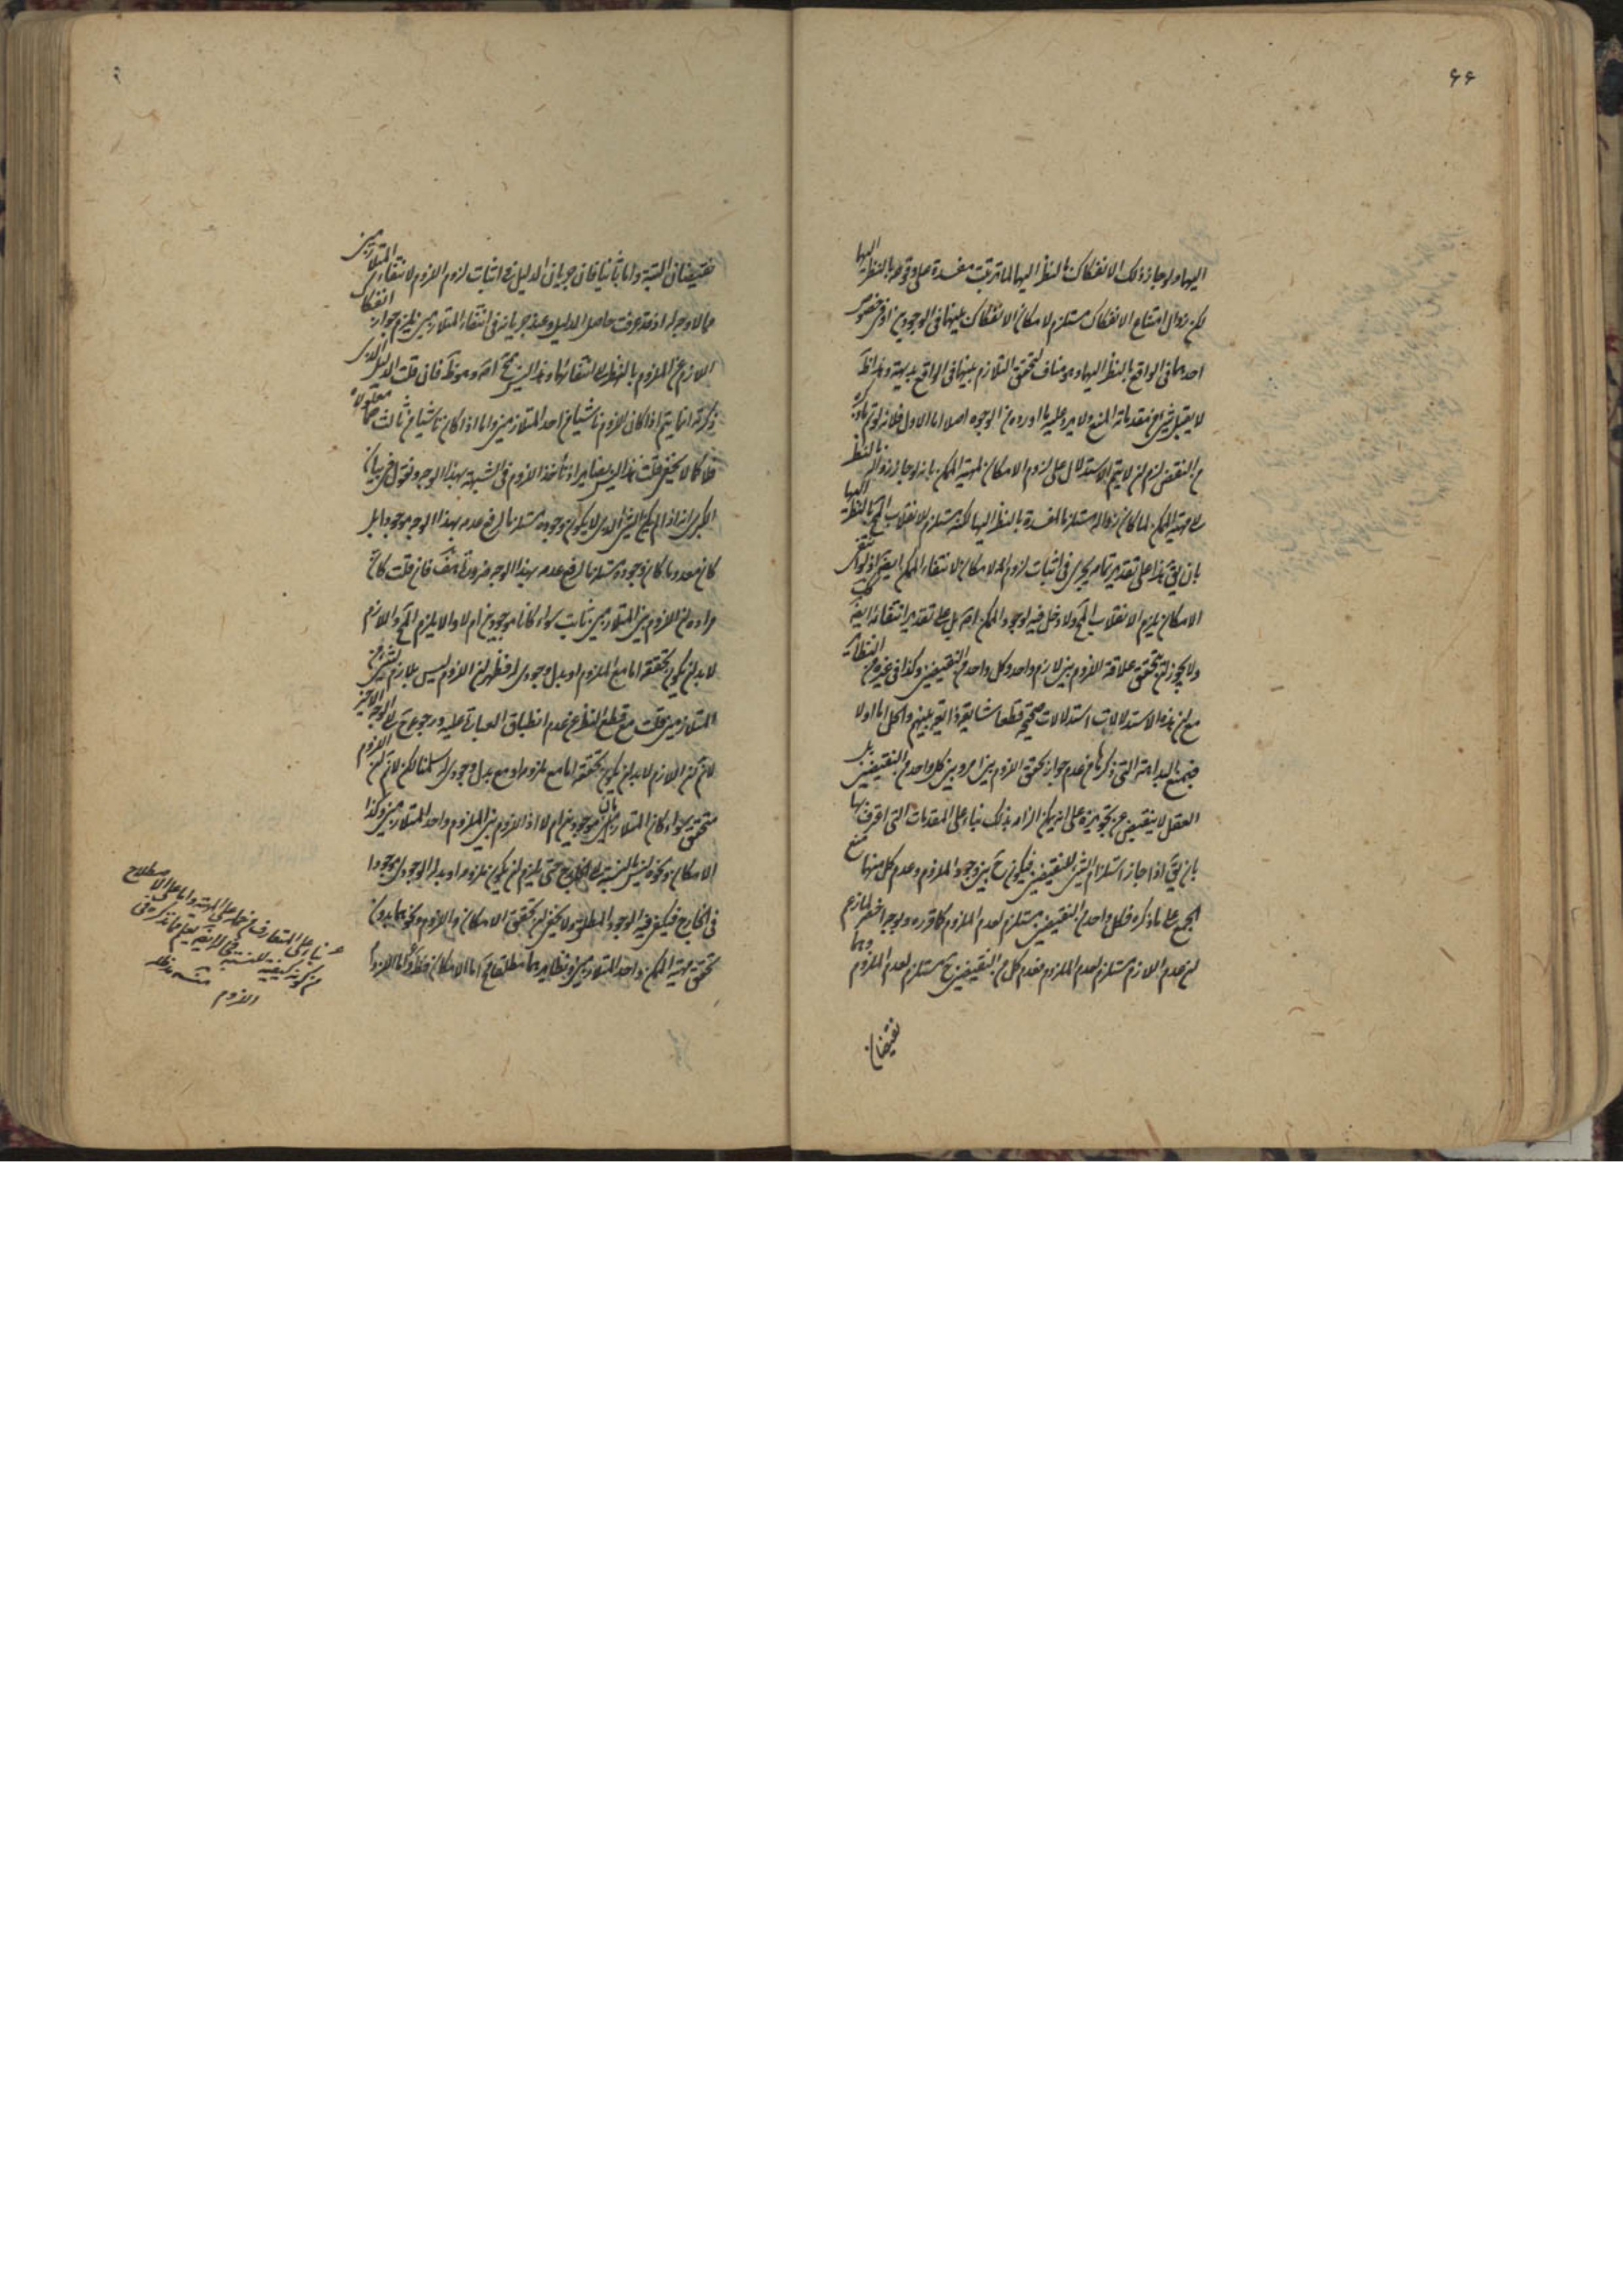 ٤٤
اليها ولو جاز ذلك الانفكاك بالنظر اليها لما ترتبت مفسدة على وقوعه بالنظر اليها
لكن زوال امتناع الانفكاك مستلزم لامكان الانفكاك بينهما في الوجودين او في خصوص
احدهما في الواقع بالنظر اليها وهو مناف لتحقق التلازم بينهما في الواقع بديهة وهذا ظ
لا يقبل شيئ من مقدماته المنع ولا يرد عليه ما اورده من الوجوه اصلا اما الاول فلانه لو تم ما ذكره
من النقض لزم ان لا يتم الاستدلال على لزوم الامكان لمهية الممكن بانه لو جاز زواله بالنظر
الى مهية الممكن لما كان زواله مستلزما لمفسدة بالنظر اليها لكنه مستلزم لانقلاب المح بالنظر اليها
بان يق هذا على تقدير تمامه يجري في اثبات لزوم الامكان لانتفاء الممكن ايضا اذ لو انتفى
الامكان يلزم الانقلاب المح ولا دخل فيه لوجود الممكن اصلا بل على تقدير انتفائه ايضا كك
ولا يجوز ان يتحقق علاقة اللزوم بين لازم واحد وكل واحد من النقيضين وكذا في غيره من النظائر
مع ان هذه الاستدلالات استدلالات صحيحة قطعا شايعة ذايعة بينهم والحل اما اولا
فبمنع البداهة التي ذكرها من عدم جواز تحقق اللزوم بين امر وبين كل واحد من النقيضين بل
العقل لا ينقبض عن تجويزه على انه يمكن الزامه بذلك بناء على المقدمات التي اعترف بها
بان يق اذا جاز استلزام الشيئ للنقيضين فيكون ح بين وجود الملزوم وعدم كل منهما منع
الجمع على ما ذكره فكل واحد من النقيضين مستلزم لعدم الملزوم كما قرره وبوجه اخصر لما زعم
ان عدم اللازم مستلزم لعدم الملزوم فعدم كل من النقيضين ح مستلزم لعدم الملزوم وهما
نقيضان
نقيضان البتة واما ثانيا فان جريان الدليل في اثبات لزوم اللزوم لانتفاء المتلازمين
مما لا وجه له اذ قد عرفت حاصل الدليل وعند جريانه في انتفاء المتلازمين يلزم جواز انفكاك
اللازم عن الملزوم بالنظر الى انتفائهما وهذا ليس بمح اصلا وهو ظ فان قلت الدليل الذي
ذكرته انما يتم اذا كان اللزوم ناشيا من احد المتلازمين واما اذا كان ناشيا من ثالث هما معلولاه
فلا كما لا يخفى قلت هذا ليس بضاير اذ نأخذ اللزوم في الشبهة بهذا الوجه ونقول في بيان
الكبرى انه اذا لم يكن الشيئ الذي لا يكون وجوده مستلزما لرفع عدمه بهذا الوجه موجودا بل
كان معدوما كان وجوده مستلزما لرفع عدمه بهذا الوجه ضرورة هف فان قلت كان
مراده ان اللزوم بين المتلازمين ثابت سواء كانا موجودين ام لا والا يلزم المح واللازم
لا بد ان يكون تحققه اما مع الملزوم او بدل وجوده فظهر ان اللزوم ليس بلازم لشيئ من
المتلازمين قلت مع قطع النظر عن عدم انطباق العبارة عليه ورجوعه ح الى الوجه الاخير
لانم ان اللازم لا بد ان يكون تحققه اما مع ملزومه او مع بدل وجوده سلمنا لكن لانم ان اللزوم
متحقق سواء كان المتلازمان موجودين ام لا اذ اللزوم بين الملزوم واحد المتلازمين وكذا
الامكان ونحوه ليس بالنسبة الى الخارج حتى يلزم ان يكون ملزومه او بدله الوجودي موجودا
في الخارج فيكفي فيه الوجود المطلق ولا يخفى ان تحقق الامكان واللزوم ونحوهما بدون
تحقق مهية الممكن واحد المتلازمين ونظايرهما مطلقا مح اما الامكان فظ واما اللزوم
بناء على المتعارف من حمله على المهية واما على الاصطلاح
في الرابعة يعلم ما ذكره في
من كونه كيفية للنسبة
منه مد ظله
واللزوم